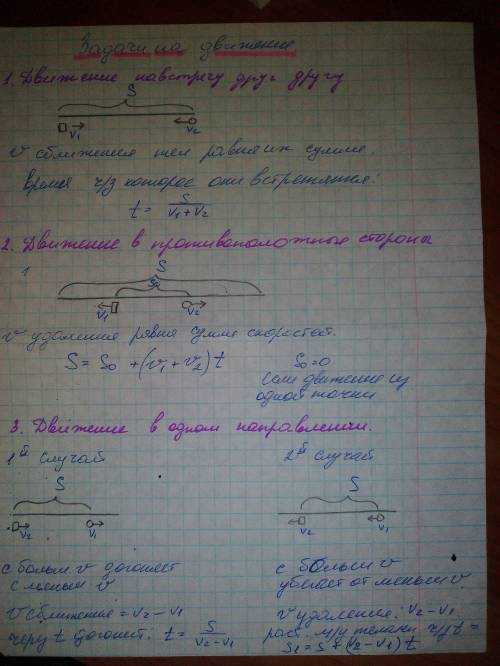 Задачи на движение
1. Движение навстречу друг другу
S
v₁ v₂
v сближения тел равна их сумме.
Время ч/з которое они встретятся:
t = S/(v₁+v₂)
2. Движение в противоположные стороны
1
S
S₀
v₁ v₂
v удаления равна сумме скоростей.
S = S₀ + (v₁ + v₂) t
S₀ = 0
если движение из
одной точки
3. Движение в одном направлении.
1й случай
S
v₂ v₁
с больш v догоняет
с меньш v
v сближения = v₂ - v₁
через t догонит: t = S/(v₂-v₁)
2й случай
S
v₂ v₁
с больш v
убегает от меньш v
v удаления: v₂ - v₁
раст. м/у телами ч/з t =
S₁ = S + (v₂ - v₁) t